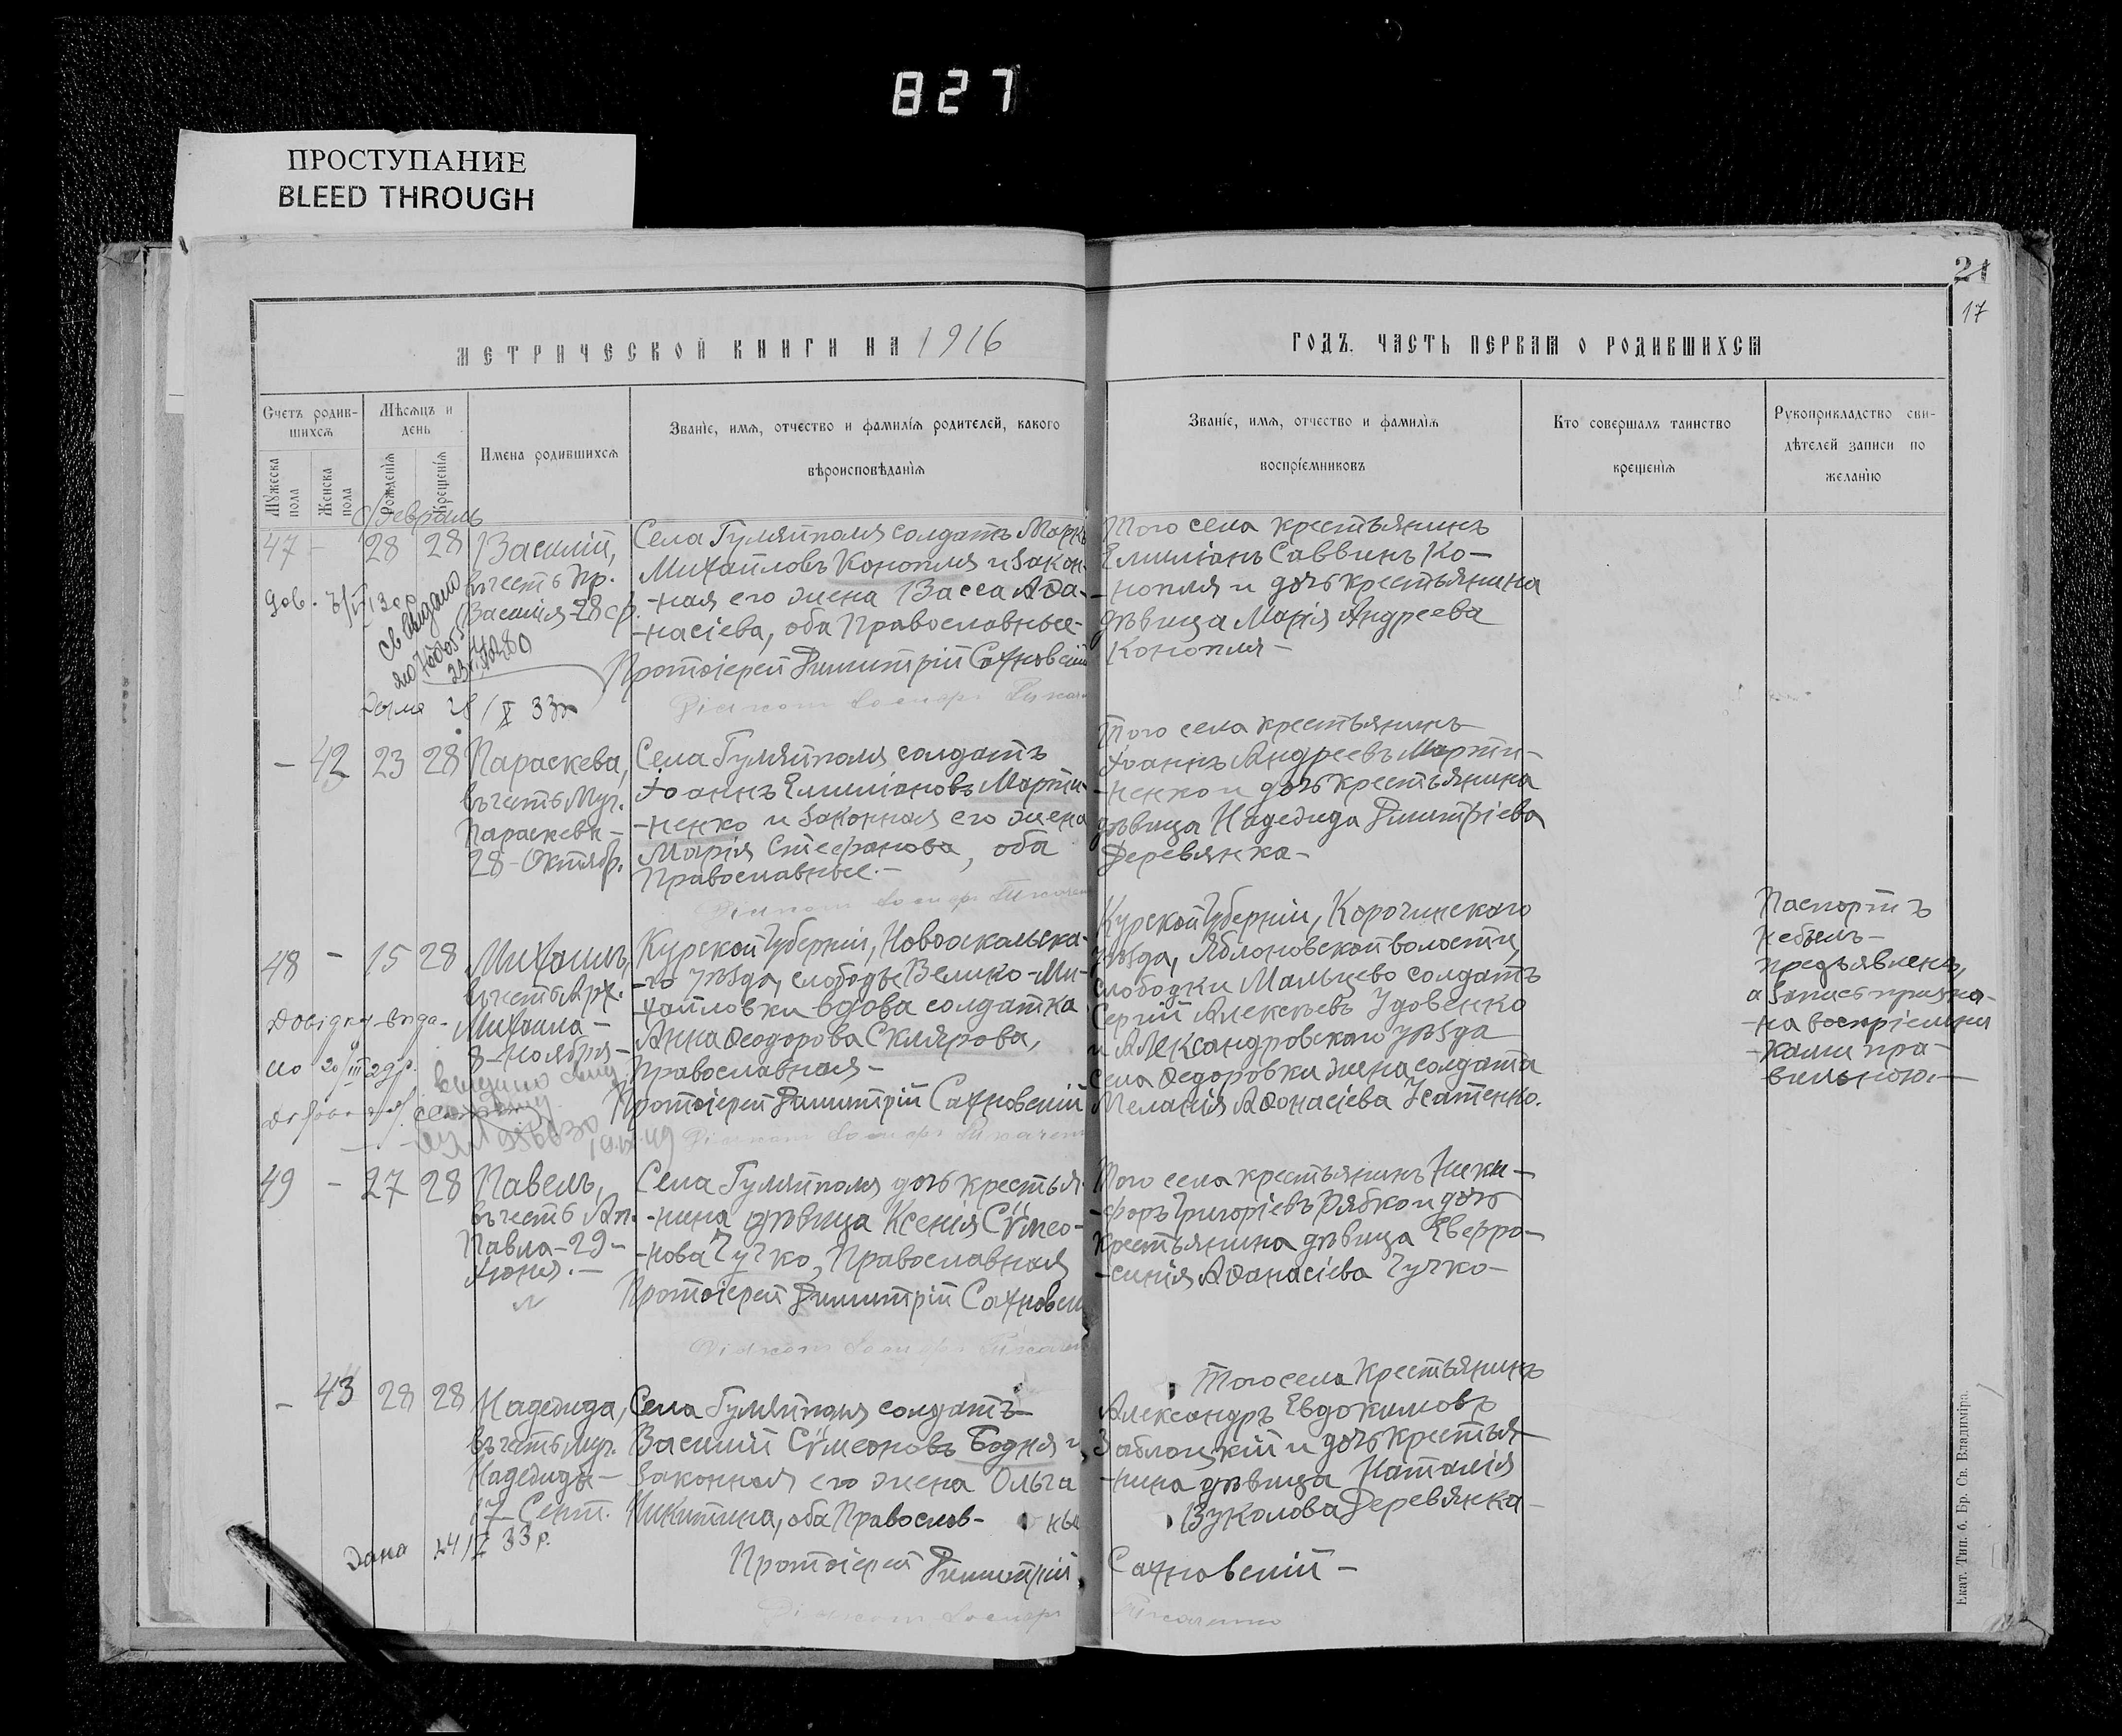 827
ПРОСТУПАНИЕ
BLEED THROUGH
21
17
МЕТРИЧЕСКОЙ КНИГИ НА 1916
ГОДЪ. ЧАСТЬ ПЕРВАЯ О РОДИВШИХСЯ
Счетъ родив-
шихся
Мужеска
пола
Женска
пола
Мѣсяцъ и
день
Рожденія
Крещенія
Имена родившихся
Званіе, имя, отчество и фамилія родителей, какого
вѣроисповѣданія
Званіе, имя, отчество и фамилія
воспріемниковъ
Кто совершалъ таинство
крещенія
Рукоприкладство сви-
дѣтелей записи по
желанію
Февраль
47 - 28 28 Василій,
въ честь Пр.
Василія-28 ф.
Дов.
Села Гуляйполя солдатъ Маркъ
Михайловъ Конопля и закон-
-ная его жена Васса Аѳа-
-насіева, оба Православные-
Протоіерей Димитрій Сахновскій
Того села крестьянинъ
Емиліанъ Саввинъ Ко-
-нопля и дочь крестьянина
дѣвица Марія Андреева
Конопля-
- 42 23 28 Параскева,
въ честь Муч.
Параскевы-
28-Октябр.
Села Гуляйполя солдатъ
Іоаннъ Емиліановъ Марти-
-ненко и законная его жена
Марія Стефанова, оба
Православные.-
Того села крестьянинъ
Іоаннъ Андреевъ Марти-
-ненко и дочь крестьянина
дѣвица Надежда Димитріева
Деревянка-
48 - 15 28 Михаилъ,
въ честь Арх.
Михаила-
8-Ноября-
Курской губерніи, Новооскольска-
-го уѣзда, слободы Велико-Ми-
-хайловки вдова солдатка
Анна Ѳеодорова Склярова,
Православная-
Протоіерей Димитрій Сахновскій
Курской губерніи, Корочинскаго
уѣзда, Яблоновской волости,
слободки Мальцево солдатъ
Сергій Алексѣевъ Удовенко
и Александровскаго уѣзда
села Ѳедоровки жена солдата
Меланія Аѳонасіева Усатенко.
Паспортъ
не былъ-
предъявленъ,
а запись призна-
-на воспріемни-
-ками пра-
вильною.-
49 - 27 28 Павелъ,
въ честь Ап.
Павла-29-
Іюня.-
Села Гуляйполя дочь крестья-
-нина дѣвица Ксенія Сѵмео-
-нова Гучко, Православная
Протоіерей Димитрій Сахновскій
Того села крестьянинъ Ники-
-форъ Григоріевъ Рябко и дочь
крестьянина дѣвица Евфро-
-синія Аѳанасіева Гучко-
- 43 28 28 Надежда,
въ честь Муч.
Надежды-
17-Сент.
Села Гуляйполя солдатъ-
Василій Сѵмеоновъ Бодня и
законная его жена Ольга
Никитина, оба Православ-ные
Протоіерей Димитрій Сахновскій-
Того села Крестьянинъ
Александръ Евдокимовъ
Заблоцкій и дочь крестья-
-нина дѣвица Наталія
Вуколова Деревянка-
Дана 24/I 33 р.
Екат. Тип. б. Бр. Св. Владиміра.